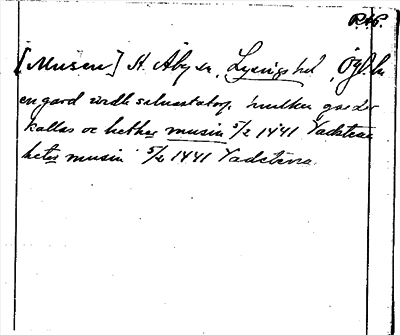 RAP.
[Musen] St. Åby sn, Lysings hd, Ögl. län
en gard widh saluastatorp, hwilken gardr
kallas oc hether musin 5/2 1441 Vadstena
heter musin 5/2 1441 Vadstena.